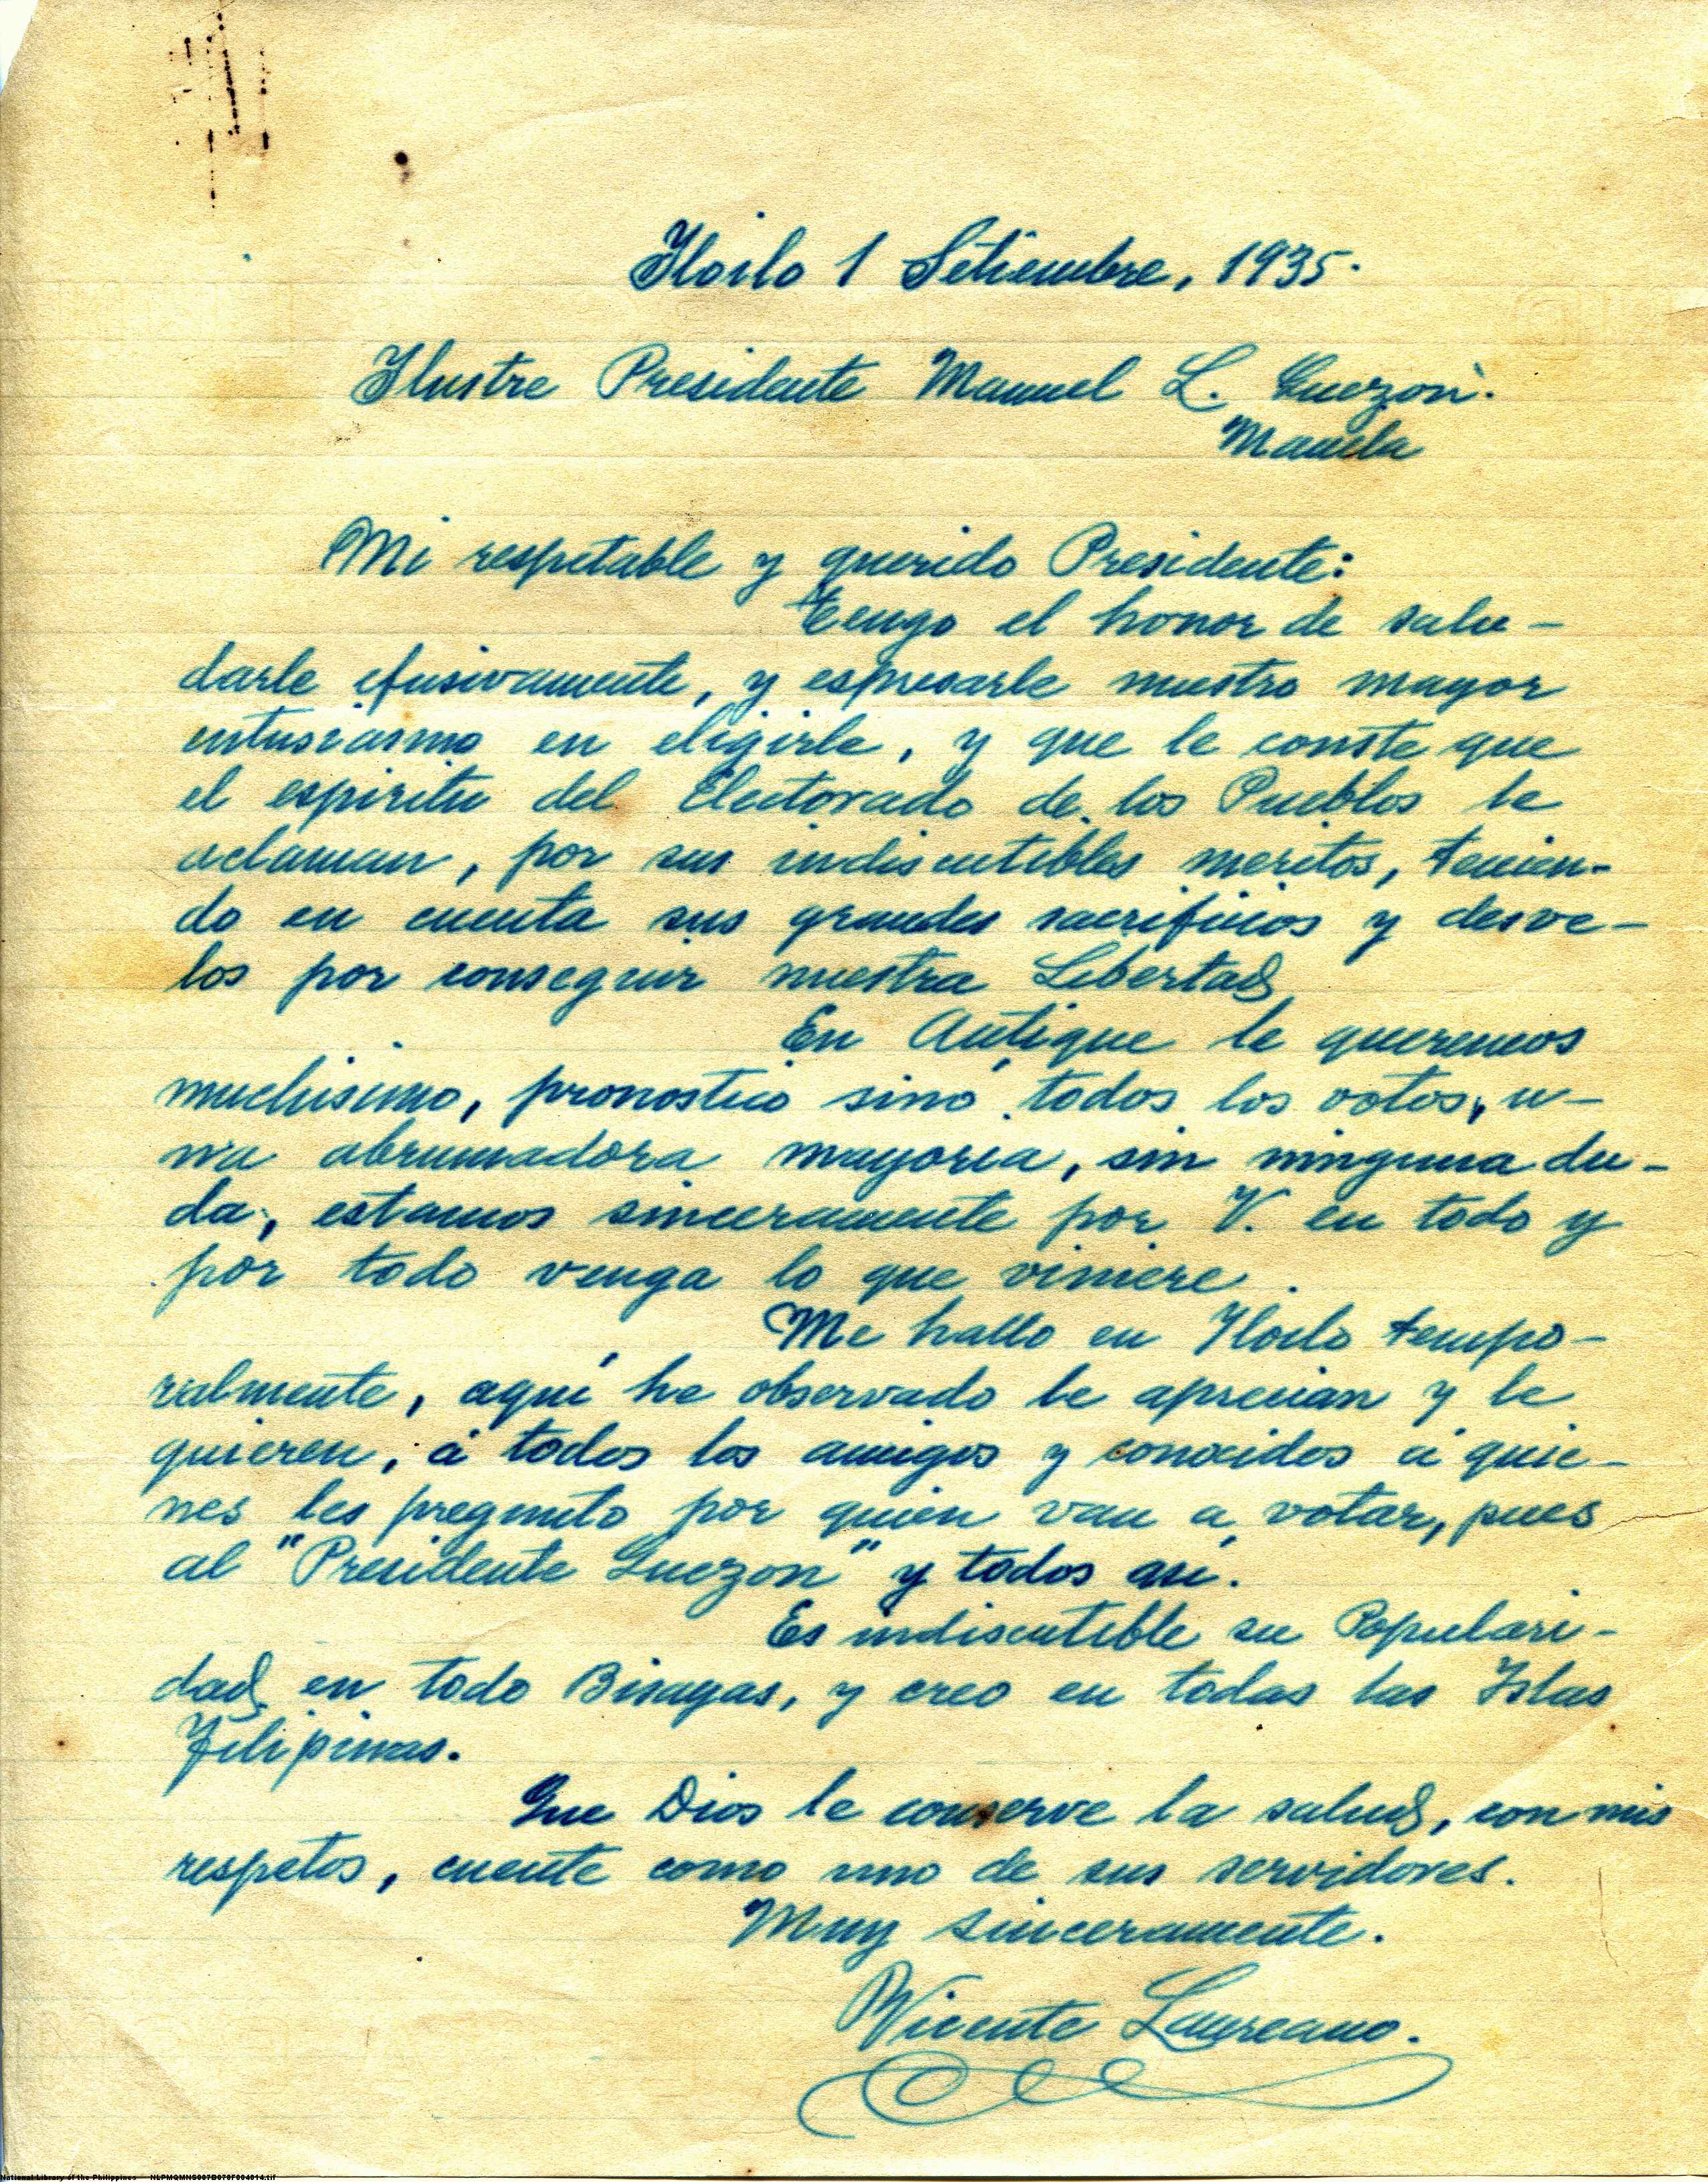 Iloilo 1 Setiembre, 1935.
Ilustre Presidente Manuel L. Quezon.
Manila
Mi respetable y querido Presidente:
Tengo el honor de salu-
darle efusivamente, y espresarle nuestro mayor
entusiasmo en eligirle, y que le conste que
el espiritu del Electorado de los Pueblos le
aclaman, por sus indiscutibles meritos, tenien-
do en cuenta sus grandes sacrificios y desve-
los por conseguir nuestra Libertad
En Antique le queremos
muchisimo, pronostico sinó todos los votos, u-
na abrumadora mayoria, sin ninguna du-
da, estamos sinceramente por V. en todo y
por todo venga lo que viniere.
Me hallo en Iloilo tempo-
ralmente, aquí he observado le aprecian y le
quieren, á todos los amigos y conocidos á quie-
nes les pregunto por quien van a votar, pues
al "Presidente Quezon" y todos así.
Es indiscutible su Populari-
dad en todo Bisayas, y creo en todas las Islas
Filipinas.
Que Dios le conserve la salud, con mis
respetos, cuente como uno de sus servidores.
Muy sinceramente.
Vicente Laureano.
National Library of the Philippines NLPMQMNS007B070F004014.tif